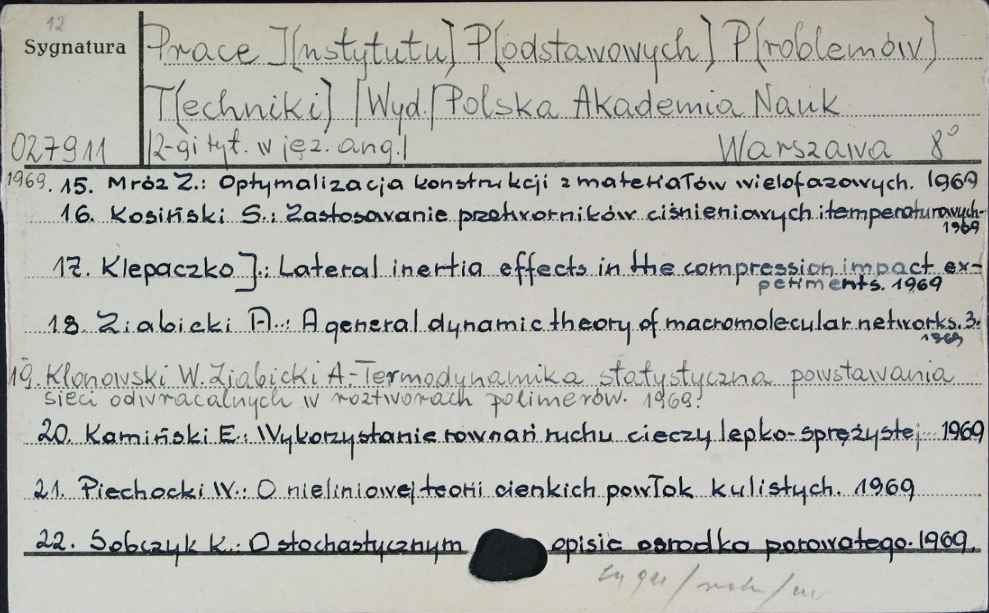 12
Sygnatura
Prace I[nstytutu] P[odstawowych] P[roblemów]
T[echniki] /Wyd./ Polska Akademia Nauk
027911 /2-gi tyt. w jęz. ang./ Warszawa 8°
1969. 15. Mróz Z.: Optymalizacja konstrukcji z materiałów wielofazowych. 1969
16. Kosiński S.: Zastosowanie przetworników ciśnieniowych i temperaturowych.
1969
17. Klepaczko J.: Lateral inertia effects in the compression impact ex-
periments. 1969
18. Ziabicki A.: A general dynamic theory of macromolecular networks. 3.
1969
19. Klonowski W. Ziabicki A.- Termodynamika statystyczna powstawania
sieci odwracalnych w roztworach polimerów. 1969.
20. Kamiński E.: Wykorzystanie równań ruchu cieczy lepko-sprężystej 1969
21. Piechocki W.: O nieliniowej teorii cienkich powłok kulistych. 1969
22. Sobczyk K.: O stochastycznym opisie ośrodka porowatego. 1969.